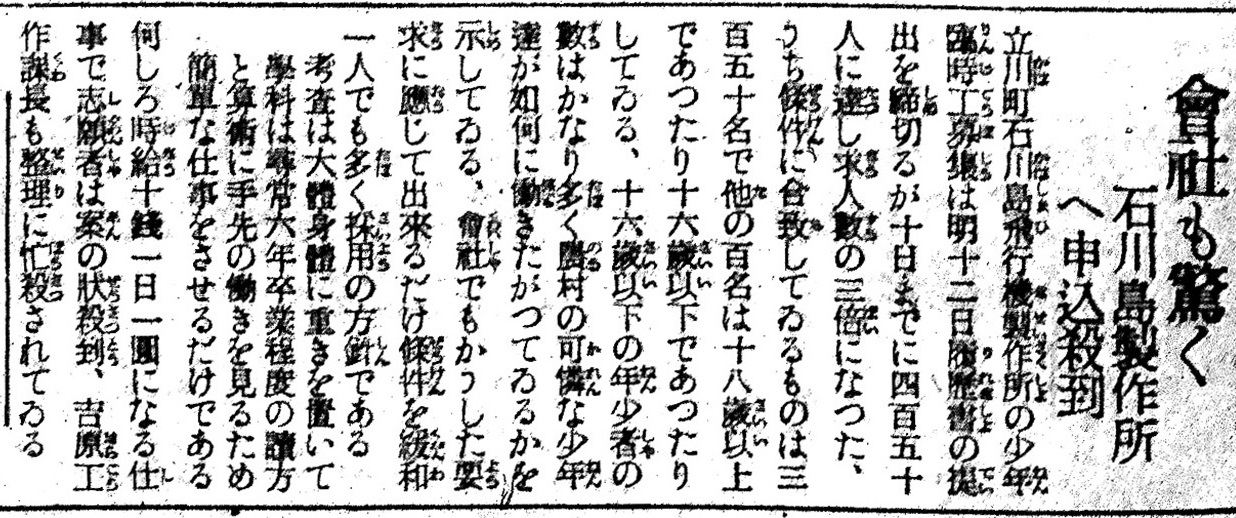 會社も驚く
石川島製作所
へ申込殺到
立川町石川島飛行機製作所の少年
臨時工募集は明十二日履歴書の提
出を締切るが十日までに四百五十
人に達し求人數の三倍になつた、
うち條件に合致してゐるものは三
百五十名で他の百名は十八歲以上
であつたり十六歲以下であつたり
してゐる、十六歲以下の年少者の
數はかなり多く農村の可憐な少年
達が如何に働きたがつてゐるかを
示してゐる、會社でもかうした要
求に應じて出來るだけ條件を緩和
一人でも多く採用の方針である
考査は大體身體に重きを置いて
學科は尋常六年卒業程度の讀方
と算術に手先の働きを見るため
簡單な仕事をさせるだけである
何しろ時給十錢一日一圓になる仕
事で志願者は案の狀殺到、吉原工
作課長も整理に忙殺されてゐる